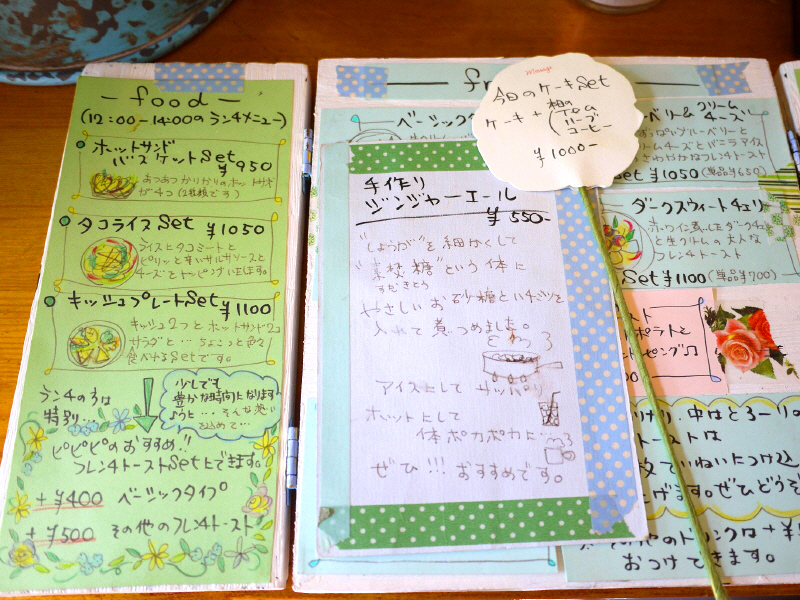 -food-
(12:00-14:00のランチメニュー)
ホットサンド
バスケットSet ¥950
あつあつかりかりのホットサンド
が4つ(2種類です)
タコライスSet ¥1050
ライスとタコミートと
ピリッと辛いサルサソースと
チーズをトッピングいたします。
キッシュプレートSet ¥1100
キッシュ2つとホットサンド2コ
サラダと…ちょこっと色々
食べれるSetです。
ランチの方は
特別…
少しでも
豊かな時間になります
ように…そんな想い
込めて…
ピピピのおすすめ!!
フレンチトーストSetにできます。
+¥400 ベーシックタイプ
+¥500 その他のフレンチトースト
手作り
ジンジャーエール
¥550-
"しょうが"を細かくして
糖"という体に
やさしいお砂糖といっしょに
入れて煮つめました。
アイスにしてサッパリ
ホットにして
体ポカポカに…
ぜひ!!!おすすめです。
今日のケーキSet
ケーキ+
ハーブ
コーヒー
¥1000-
ベーシック
ベリー&クリーム
チーズ
Set ¥1050(単品¥650)
ダークスウィートチェリー
赤ワイン煮したダークチェリー
と生クリームの大人な
フレンチトースト
Set ¥1100(単品¥700)
トッピング♫
中はとろーりの
トーストは
ていねいにつけ込
げます。ぜひどうぞ
おつけできます。